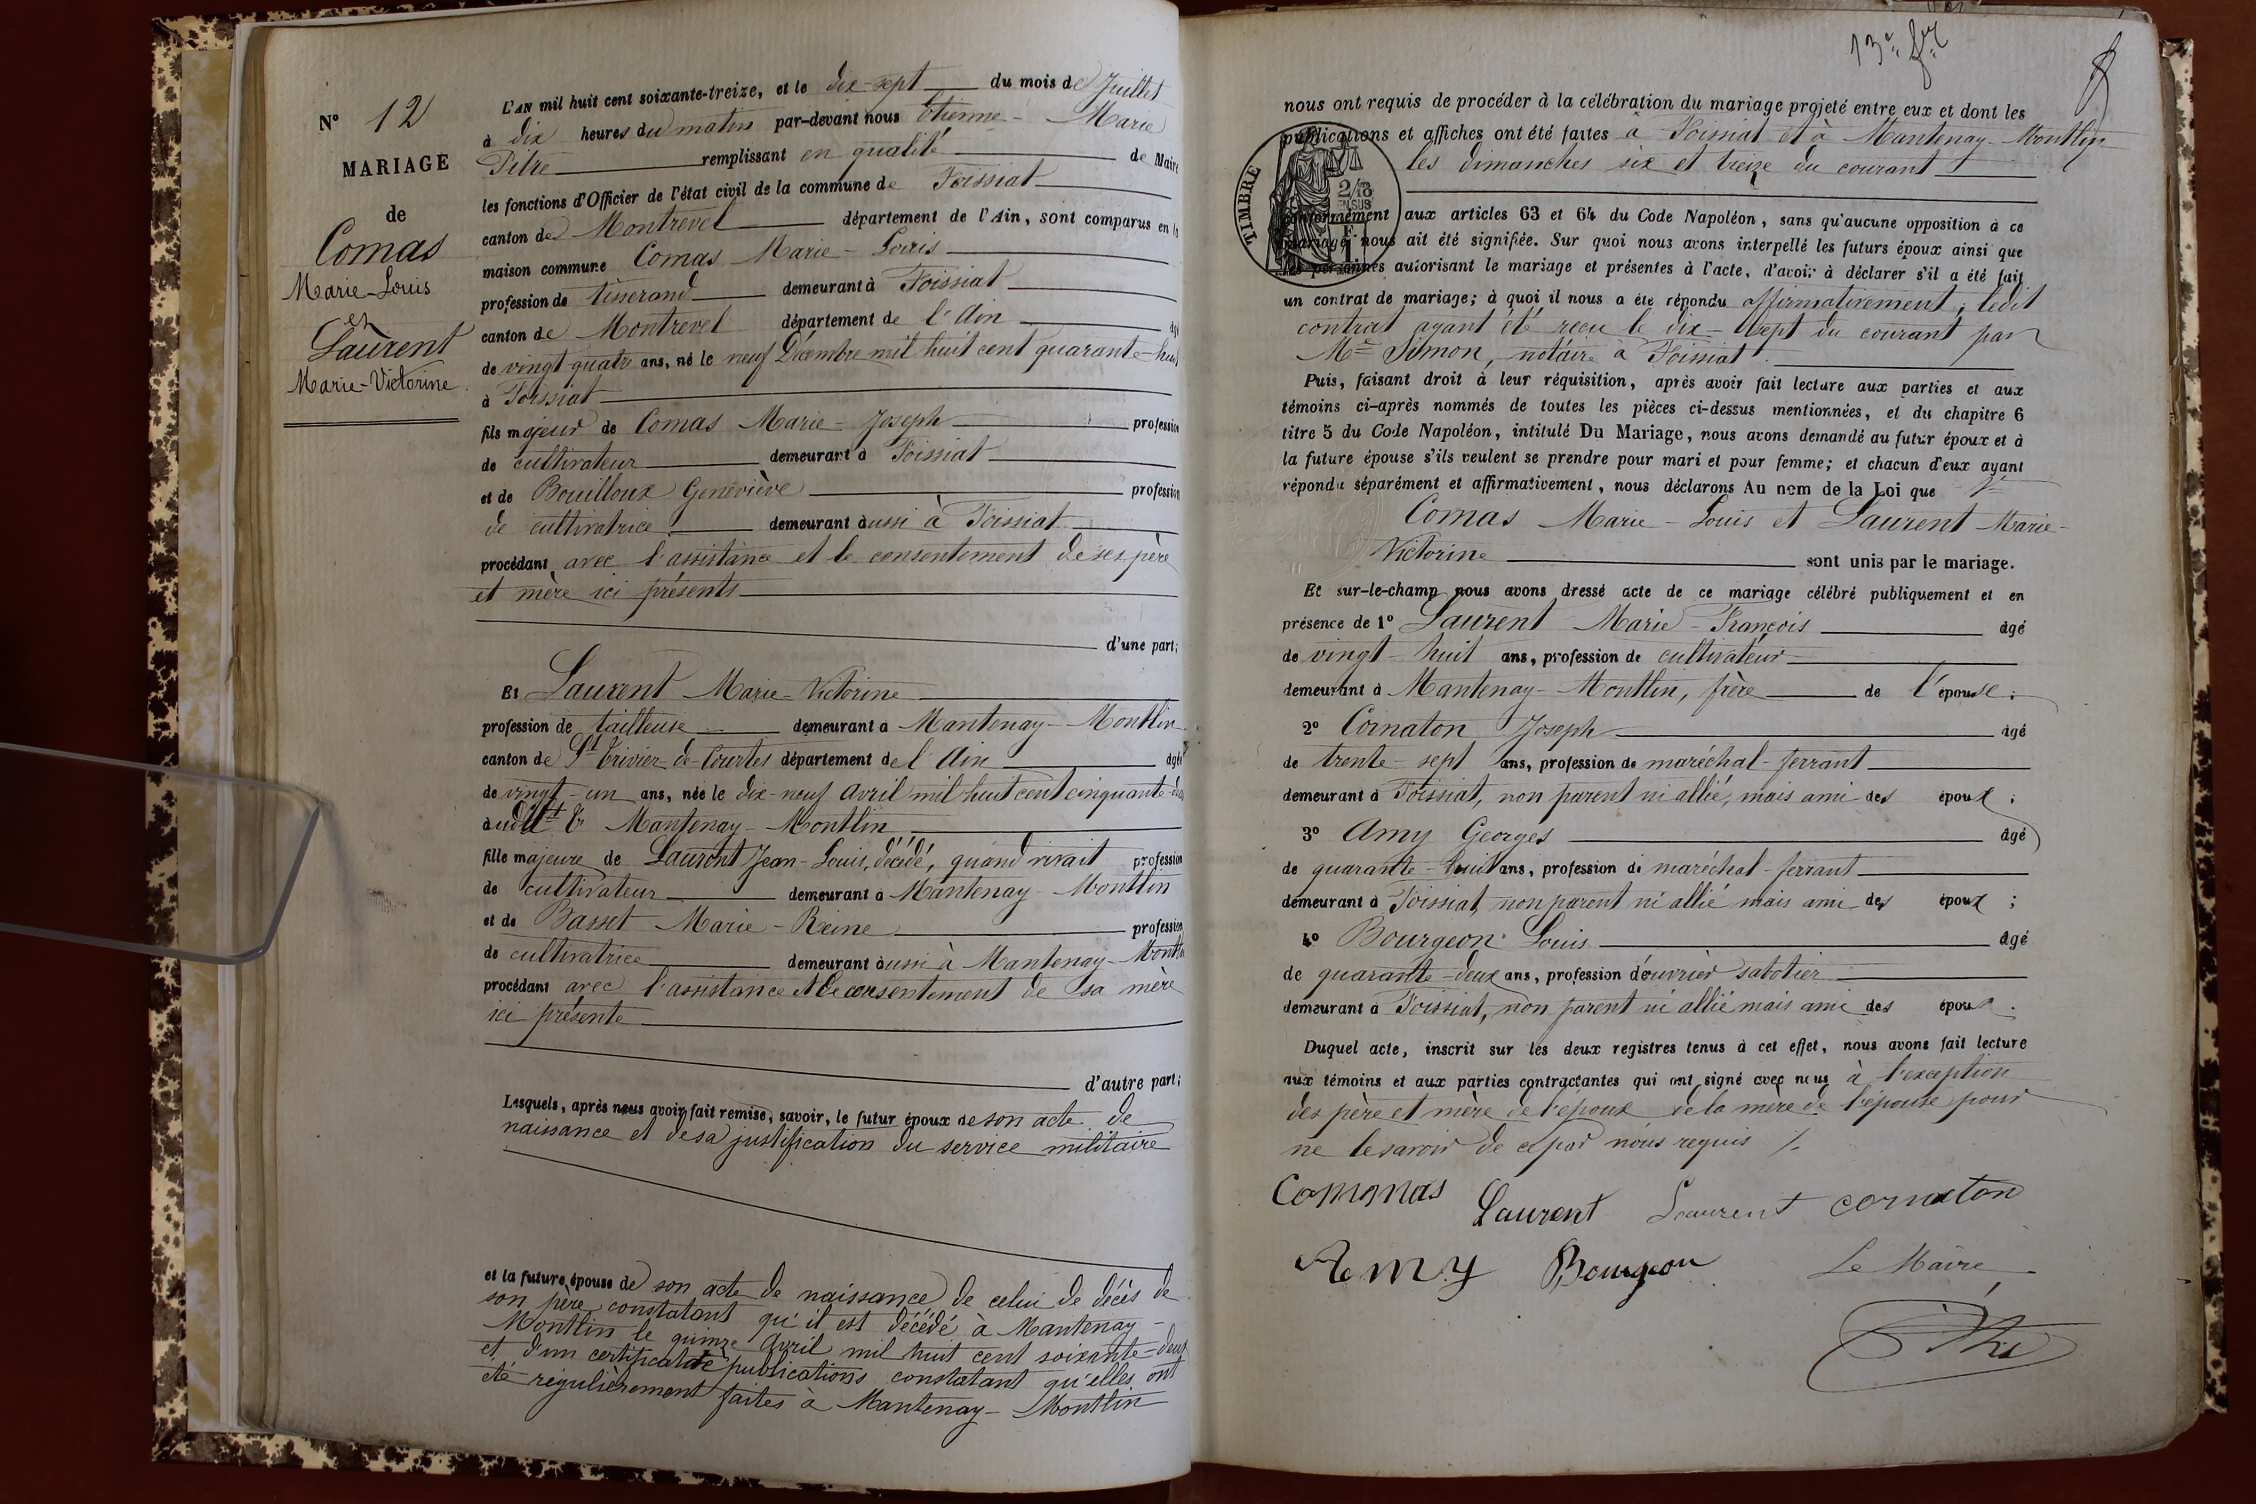 N° 12
MARIAGE
de
Comas
Marie-Louis
et
Laurent
Marie-Victorine
L'AN mil huit cent soixante-treize, et le dix-sept du mois de Juillet
à dix heures du matin par-devant nous Etienne-Marie
Pitre remplissant en qualité de Maire
les fonctions d'Officier de l'état civil de la commune de Foissiat
canton de Montrevel département de l'Ain, sont comparus en la
maison commune Comas Marie-Louis
profession de tisserand demeurant à Foissiat
canton de Montrevel département de l'Ain âgé
de vingt-quatre ans, né le neuf Décembre mil huit cent quarante-huit
à Foissiat
fils majeur de Comas Marie-Joseph profession
de cultivateur demeurant à Foissiat
et de Bouilloux Geneviève profession
de cultivatrice demeurant aussi à Foissiat
procédant avec l'assistance et le consentement de ses père
et mère ici présents
d'une part;
Et Laurent Marie-Victorine
profession de tailleuse demeurant à Mantenay-Montlin
canton de St Trivier-de-Courtes département de l'Ain âgée
de vingt-un ans, née le dix-neuf avril mil huit cent cinquante-deux
à Mantenay-Montlin
fille majeure de Laurent Jean-Louis, décédé, quand vivait profession
de cultivateur demeurant à Mantenay-Montlin
et de Basset Marie-Reine profession
de cultivatrice demeurant aussi à Mantenay-Montlin
procédant avec l'assistance et le consentement de sa mère
ici présente
d'autre part;
Lesquels, après nous avoir fait remise, savoir, le futur époux de son acte de
naissance et de sa justification du service militaire
et la future épouse de son acte de naissance de celui de décès de
son père constatant qu'il est décédé à Mantenay-
Montlin le quinze Avril mil huit cent soixante-deux
et d'un certificat de publications constatant qu'elles ont
été régulièrement faites à Mantenay-Montlin
nous ont requis de procéder à la célébration du mariage projeté entre eux et dont les
publications et affiches ont été faites à Foissiat et à Mantenay-Montlin
les dimanches six et treize du courant
TIMBRE
conformément aux articles 63 et 64 du Code Napoléon, sans qu'aucune opposition à ce
mariage nous ait été signifiée. Sur quoi nous avons interpellé les futurs époux ainsi que
les personnes autorisant le mariage et présentes à l'acte, d'avoir à déclarer s'il a été fait
un contrat de mariage; à quoi il nous a été répondu affirmativement; ledit
contrat ayant été reçu le dix-sept du courant par
Me Simon, notaire à Foissiat.
Puis, faisant droit à leur réquisition, après avoir fait lecture aux parties et aux
témoins ci-après nommés de toutes les pièces ci-dessus mentionnées, et du chapitre 6
titre 5 du Code Napoléon, intitulé Du Mariage, nous avons demandé au futur époux et à
la future épouse s'ils veulent se prendre pour mari et pour femme; et chacun d'eux ayant
répondu séparément et affirmativement, nous déclarons Au nom de la Loi que
Comas Marie-Louis et Laurent Marie-
Victorine sont unis par le mariage.
Et sur-le-champ nous avons dressé acte de ce mariage célébré publiquement et en
présence de 1° Laurent Marie-François âgé
de vingt-huit ans, profession de cultivateur
demeurant à Mantenay-Montlin, frère de l'épouse;
2° Cornaton Joseph âgé
de trente-sept ans, profession de maréchal-ferrant
demeurant à Foissiat, non parent ni allié, mais ami des époux;
3° Amy Georges âgé
de quarante-huit ans, profession de maréchal-ferrant
demeurant à Foissiat, non parent ni allié mais ami des époux;
4° Bourgeon Louis âgé
de quarante-deux ans, profession d'ouvrier sabotier
demeurant à Foissiat, non parent ni allié mais ami des époux.
Duquel acte, inscrit sur les deux registres tenus à cet effet, nous avons fait lecture
aux témoins et aux parties contractantes qui ont signé avec nous à l'exception
des père et mère de l'époux de la mère de l'épouse pour
ne le savoir de ce par nous requis
Commas Laurent Laurent cornaton
Amy Bourgeon Le Maire
Pitre